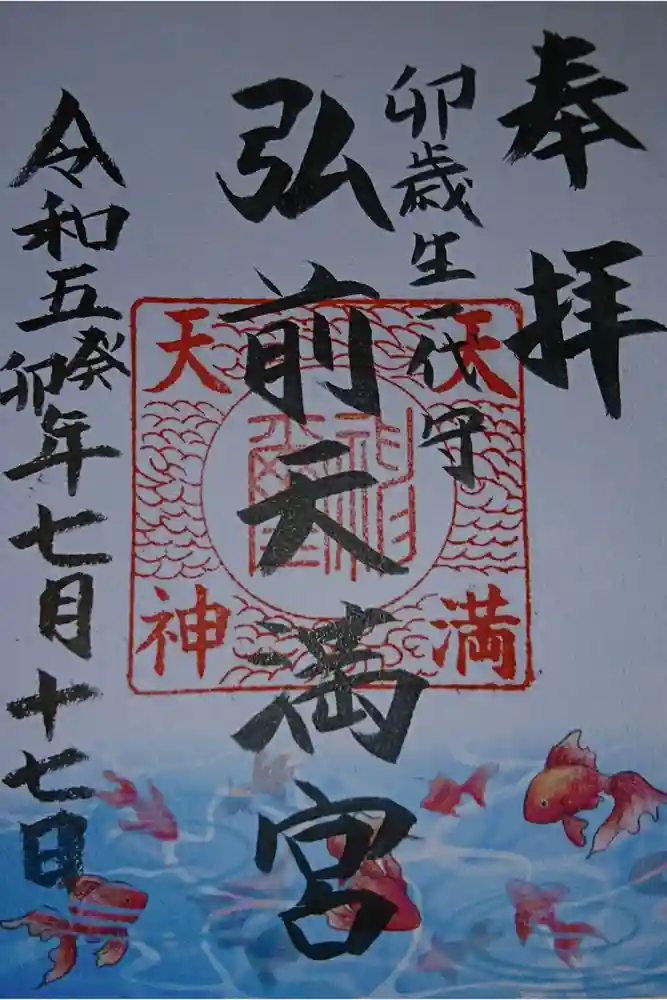 奉拝
卯歳生一代守
弘前天満宮
天満
天神
令和五癸卯年七月十七日